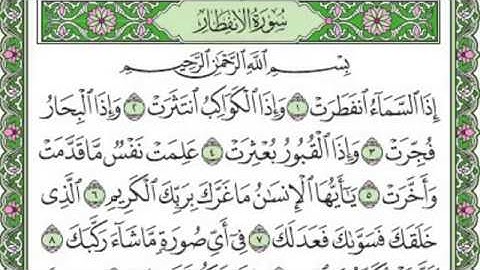 سُورَةُ الِانفِطَارِ
بِسْمِ ٱللَّهِ ٱلرَّحْمَٰنِ ٱلرَّحِيمِ
إِذَا ٱلسَّمَآءُ ٱنفَطَرَتْ ١ وَإِذَا ٱلْكَوَاكِبُ ٱنتَثَرَتْ ٢ وَإِذَا ٱلْبِحَارُ
فُجِّرَتْ ٣ وَإِذَا ٱلْقُبُورُ بُعْثِرَتْ ٤ عَلِمَتْ نَفْسٌ مَّا قَدَّمَتْ
وَأَخَّرَتْ ٥ يَٰٓأَيُّهَا ٱلْإِنسَٰنُ مَا غَرَّكَ بِرَبِّكَ ٱلْكَرِيمِ ٦ ٱلَّذِى
خَلَقَكَ فَسَوَّىٰكَ فَعَدَلَكَ ٧ فِىٓ أَىِّ صُورَةٍ مَّا شَآءَ رَكَّبَكَ ٨